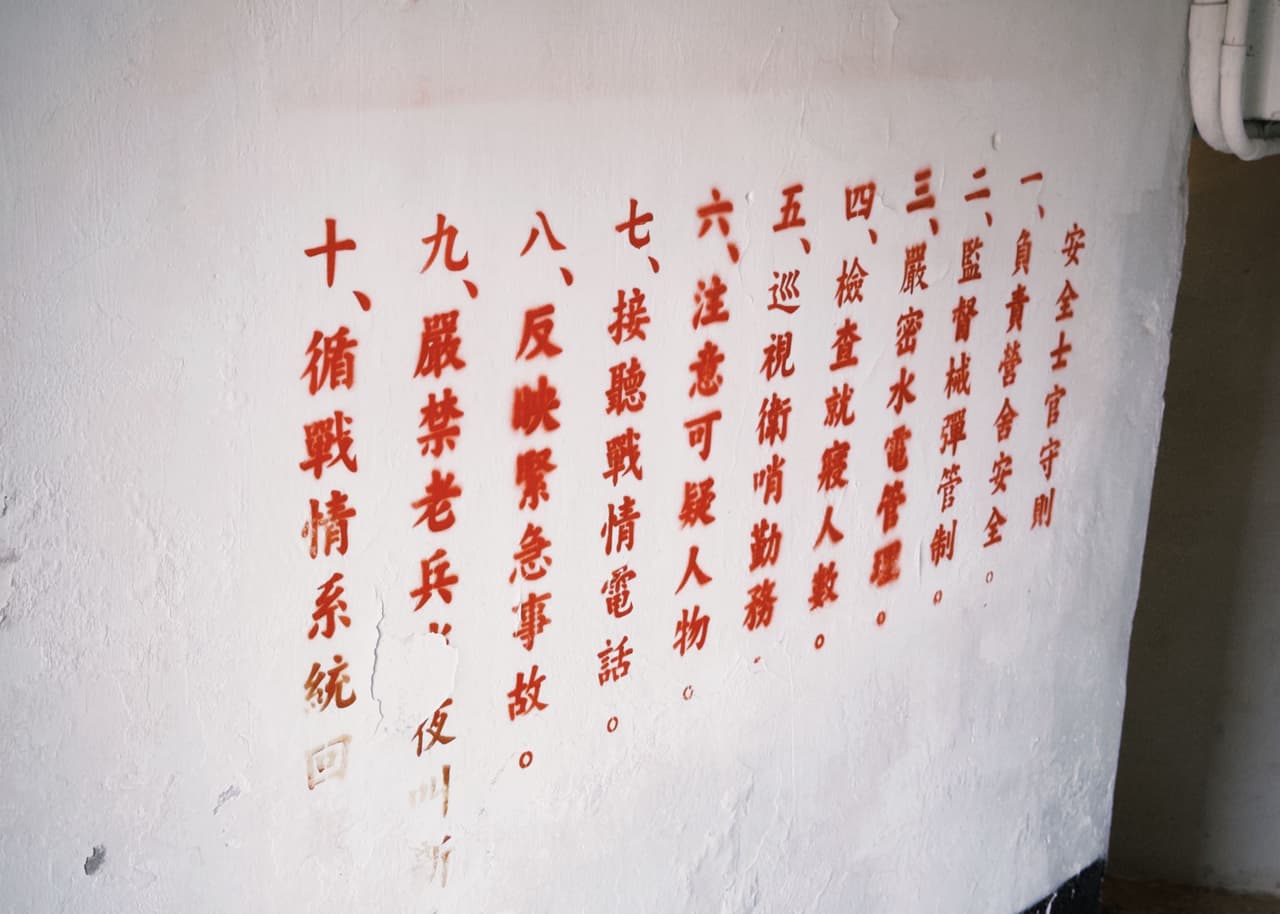 安全士官守則
一、負責營舍安全。
二、監督械彈管制。
三、嚴密水電管理。
四、檢查就寢人數。
五、巡視衛哨勤務
六、注意可疑人物。
七、接聽戰情電話。
八、反映緊急事故。
九、嚴禁老兵夜叫新
十、循戰情系統回